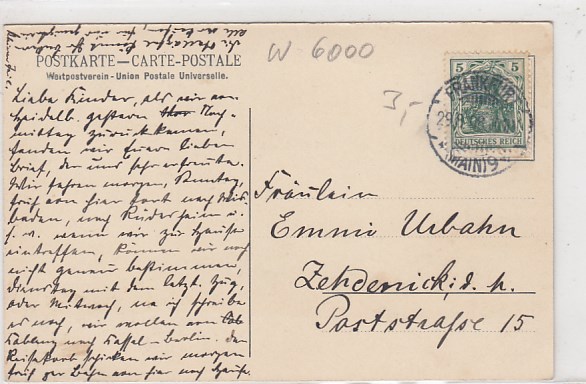 POSTKARTE — CARTE-POSTALE
Weltpostverein - Union Postale Universelle.
W 6000
3,-
5 5
DEUTSCHES REICH
FRANKFURT
(MAIN) 9
Liebe Kinder, als wir von
Heidelb. gestern Nach-
mittag zurückkamen,
fanden wir Euren lieben
Brief, der uns sehr erfreute.
Wir fahren morgen, Sonntag,
früh von hier fort nach Wies-
baden, nach Rüdesheim u.
s. w. wann wir zu Hause
eintreffen, können wir noch
nicht genau bestimmen,
Dienstag mit dem letzt. Zug,
oder Mittwoch, na ich schreibe
es noch, wir wollen von
nach Cassel - Berlin. Den
Reisekorb schicken wir morgen
früh per Bahn von hier nach Hause.
Fräulein
Emmi Urbahn
Zehdenick, d. H.
Poststraße 15